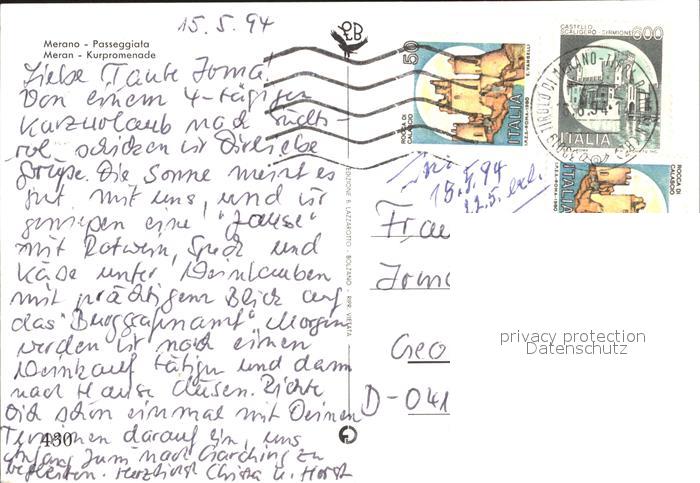 15.5.94
Merano - Passeggiata
Meran - Kurpromenade
Liebe Tante Irma!
Von einem 4-tägigen
Kurzurlaub nach Südti-
rol schicken wir Dir liebe
Grüße. Die Sonne meint es
gut mit uns, und wir
genießen eine "Jause"
mit Rotwein, Speck und
Käse unter Weinlauben
mit prächtigem Blick auf
das "Burggrafenamt". Morgen
werden wir noch einen
Weinkauf tätigen und dann
nach Hause düsen. Richte
Dich schon einmal mit Deinen
Terminen darauf ein, uns
Anfang Juni nach Garching zu
begleiten. Herzlichst Christa u. Horst
430
EDIZIONI B. LAZZAROTTO - BOLZANO - RIP. VIETATA
50
ROCCA DI
CALASCIO
ITALIA
I.P.Z.S.-ROMA-1980
E. VANGELLI
CASTELLO
SCALIGERO - SIRMIONE
600
ITALIA
ROCCA DI
CALASCIO
ITALIA
15.5.94
22.5. erl.
Frau
Geo
D-041
privacy protection
Datenschutz